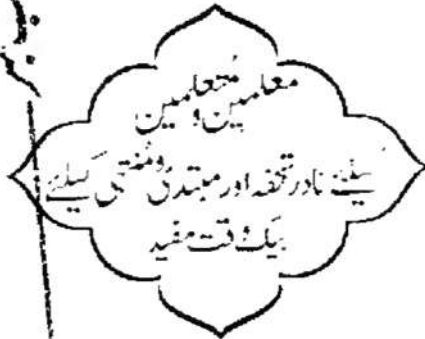 معلمین و متعلمین
کیلئے نادر تحفہ اور مبتدی و منتہی کیلئے
بیک وقت مفید